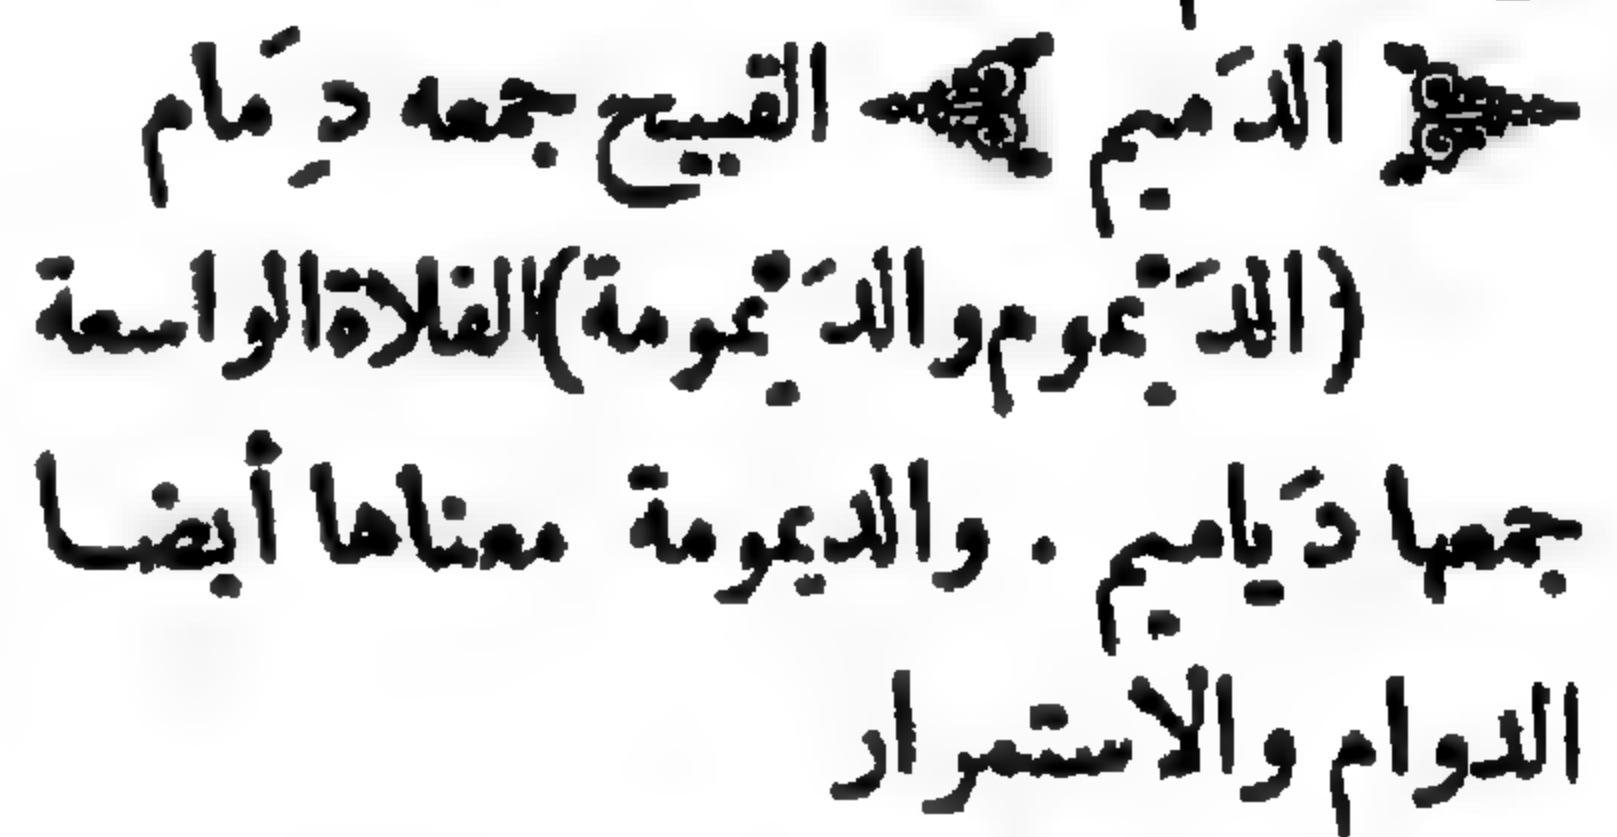 ﴿ الدَميم ﴾ القبيح جمعه دِمَام
(الدَيْموم والدَيْمومة) الفلاة الواسعة
جمعها دَياميم . والديمومة معناها أيضا
الدوام والاستمرار